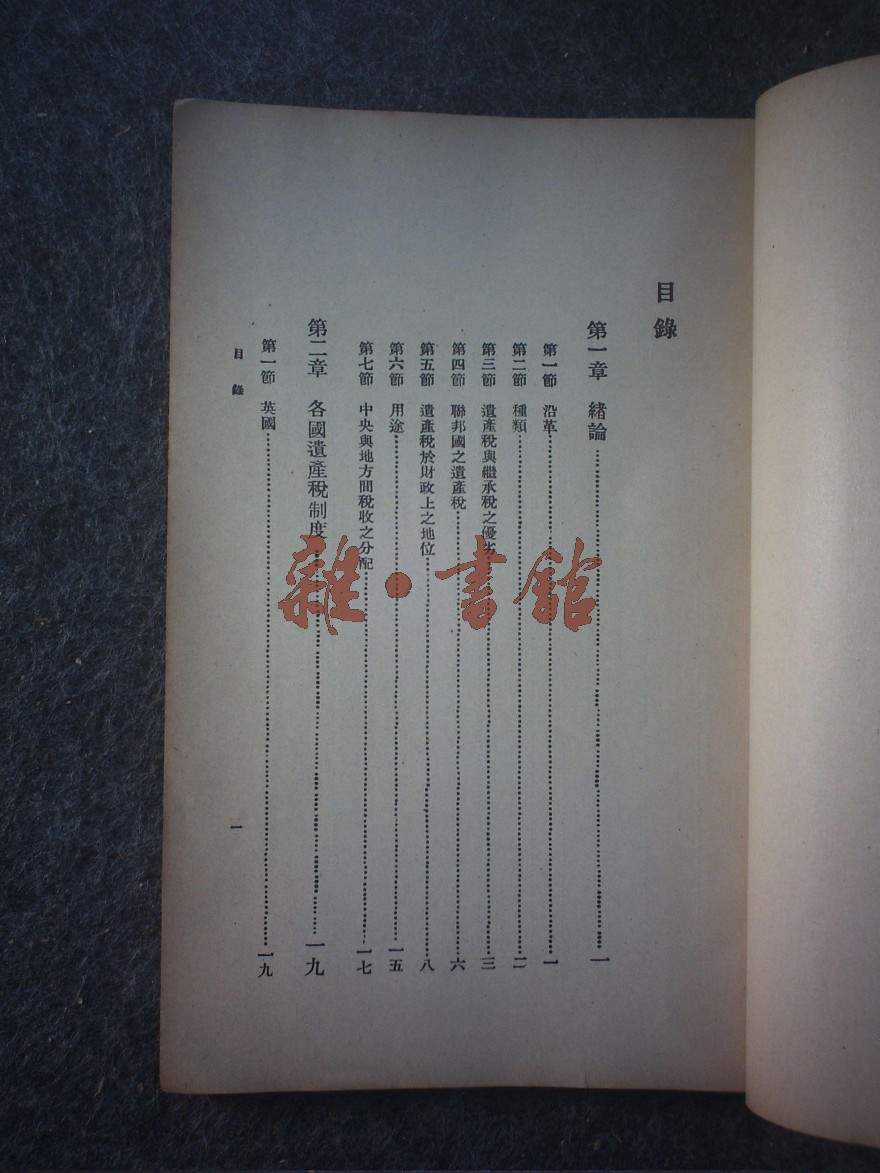 目錄
第一章 緒論……一
第一節 沿革……一
第二節 種類……二
第三節 遺產稅與繼承稅之優劣……三
第四節 聯邦國之遺產稅……六
第五節 遺產稅於財政上之地位……八
第六節 用途……一五
第七節 中央與地方間稅收之分配……一七
第二章 各國遺產稅制度……一九
第一節 英國……一九
目錄
一
雜·書館